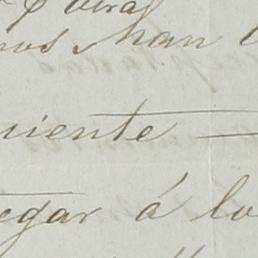 otras
nos han
uiente —
egar á lo